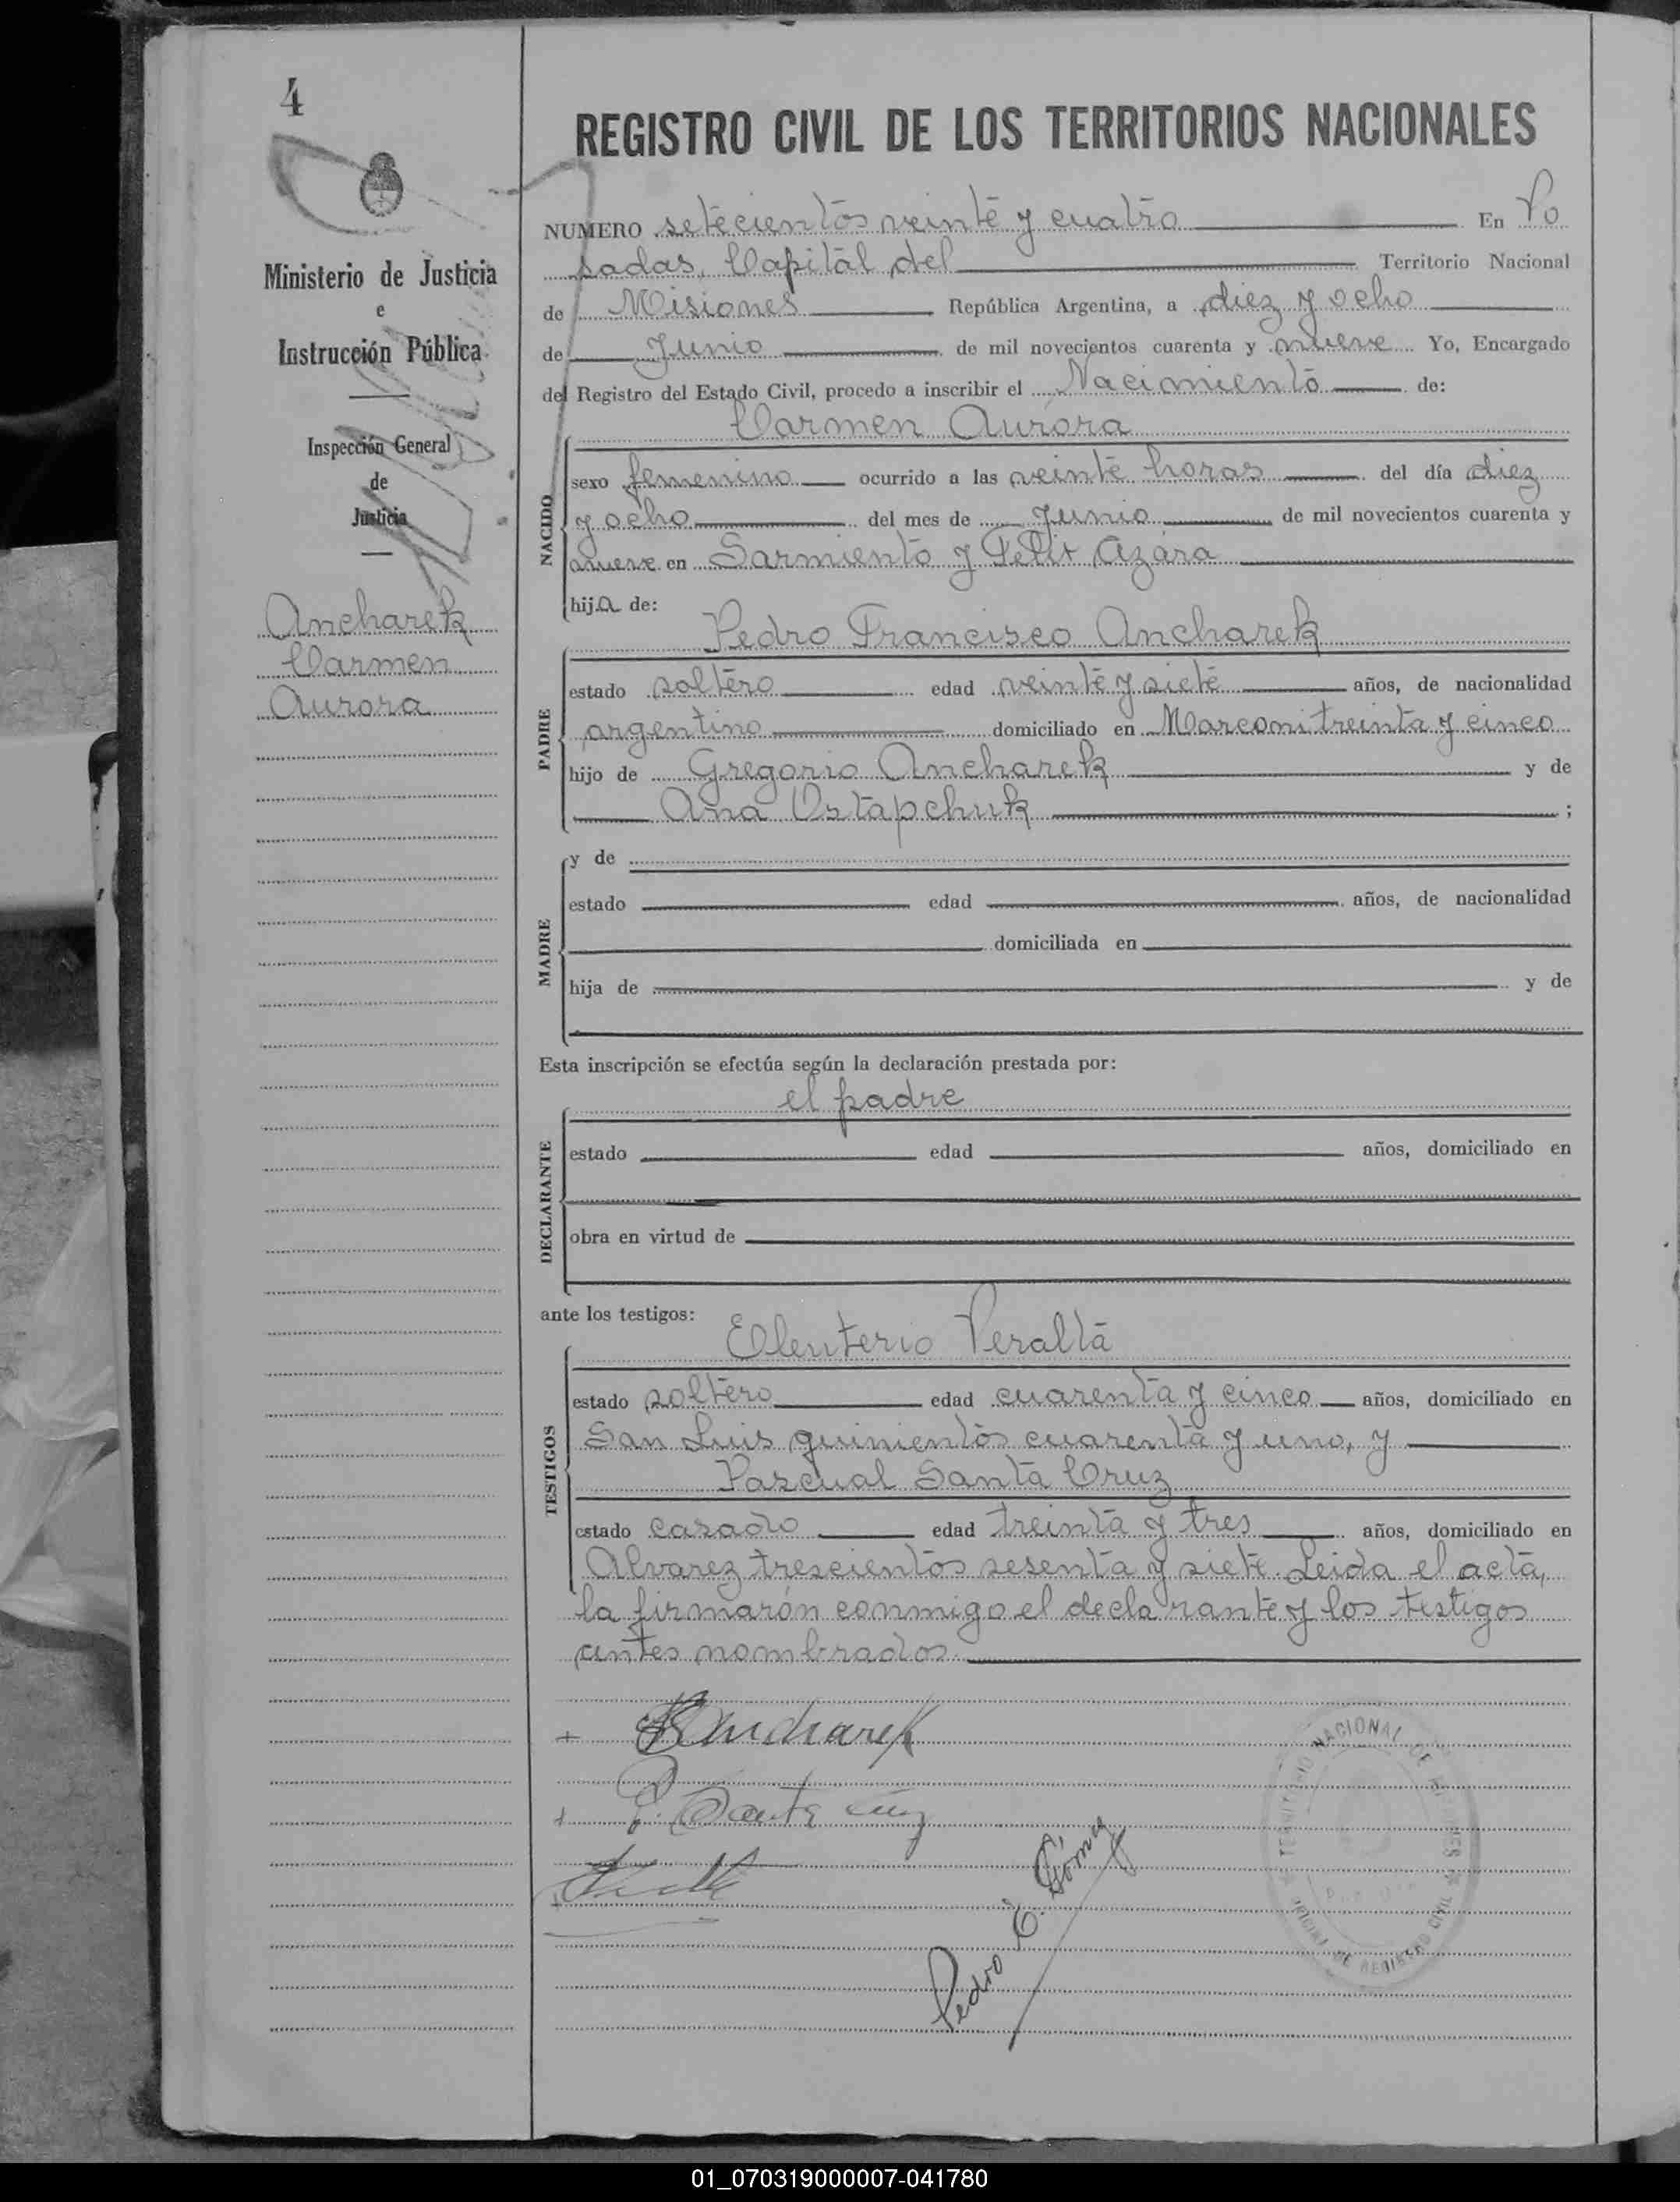 4
REGISTRO CIVIL DE LOS TERRITORIOS NACIONALES
Ministerio de Justicia
e
Instrucción Pública
Inspección General
de
Justicia
Ancharek
Carmen
Aurora
NUMERO setecientos veinte y cuatro En Po
sadas, Capital del Territorio Nacional
de Misiones República Argentina, a diez y ocho
de Junio de mil novecientos cuarenta y nueve Yo, Encargado
del Registro del Estado Civil, procedo a inscribir el Nacimiento de:
Carmen Aurora
NACIDO
sexo femenino ocurrido a las veinte horas del día diez
y ocho del mes de Junio de mil novecientos cuarenta y
nueve en Sarmiento y Felix Azara
hija de:
Pedro Francisco Ancharek
PADRE
estado soltero edad veinte y siete años, de nacionalidad
argentino domiciliado en Marconi treinta y cinco
hijo de Gregorio Ancharek y de
Ana Ostapchuk ;
MADRE
y de
estado edad años, de nacionalidad
domiciliada en
hija de y de
Esta inscripción se efectúa según la declaración prestada por:
el padre
DECLARANTE
estado edad años, domiciliado en
obra en virtud de
ante los testigos:
Eleuterio Peralta
TESTIGOS
estado soltero edad cuarenta y cinco años, domiciliado en
San Luis quinientos cuarenta y uno, y
Pascual Santa Cruz
estado casado edad treinta y tres años, domiciliado en
Alvarez trescientos sesenta y siete. Leida el acta,
la firmarón conmigo el declarante y los testigos
antes nombrados.
Ancharek
P. Santa Cruz
Pedro E. Gómez
TERRITORIO NACIONAL DE MISIONES
DE REGISTRO CIVIL
01_070319000007-041780